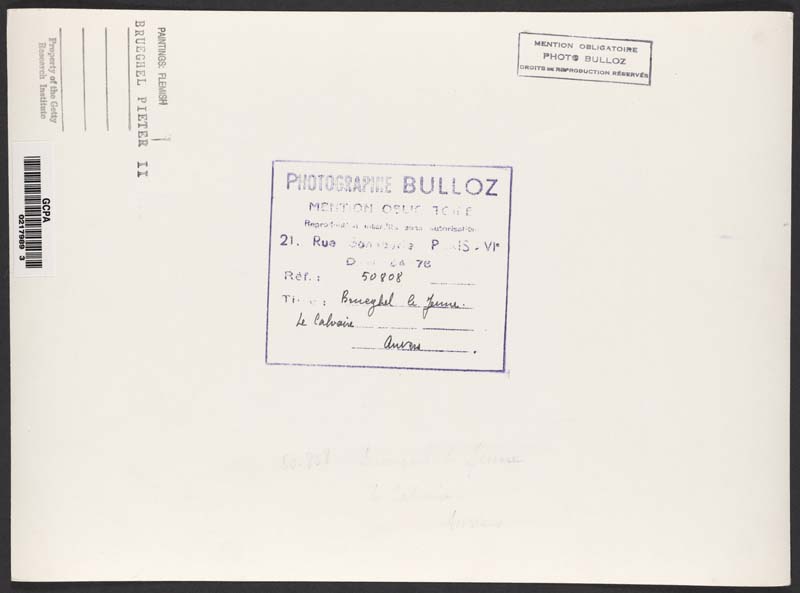 PAINTINGS: FLEMISH
BRUEGHEL PIETER II
Property of the Getty
Research Institute
GCPA
0217989 3
MENTION OBLIGATOIRE
PHOTO BULLOZ
DROITS DE REPRODUCTION RÉSERVÉS
PHOTOGRAPHIE BULLOZ
MENTION OBLIG TOIRE
Reproduction interdite sans autorisation
21. Rue Bonaparte P IS - VIe
78
Réf.: 50808
Tit e: Brueghel le Jeune.
Le Calvaire
Anvers.
50.808 Jeune
le Calvaire
Anvers